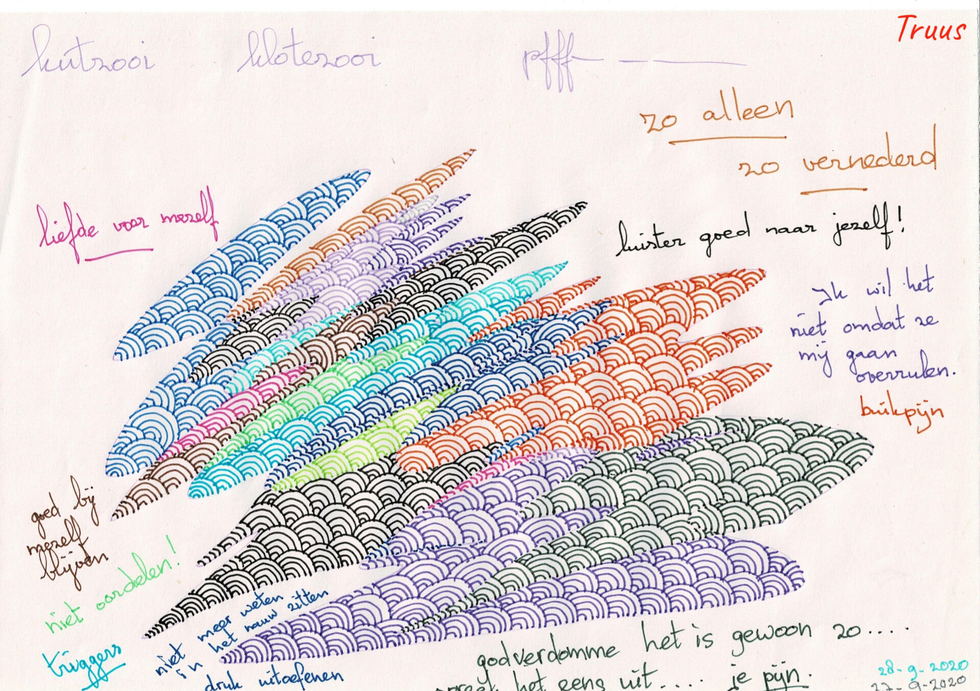 Truus
kutzooi klotezooi pfff
zo alleen
zo vernederd
liefde voor mezelf
luister goed naar jezelf!
Ik wil het
niet omdat ze
mij gaan
overrulen.
buikpijn
goed bij
mezelf
blijven
niet oordelen!
triggers
niet meer weten
in het nauw zitten
druk uitoefenen
godverdomme het is gewoon zo....
het eens uit.... je pijn.
28-9-2020
27-9-2020